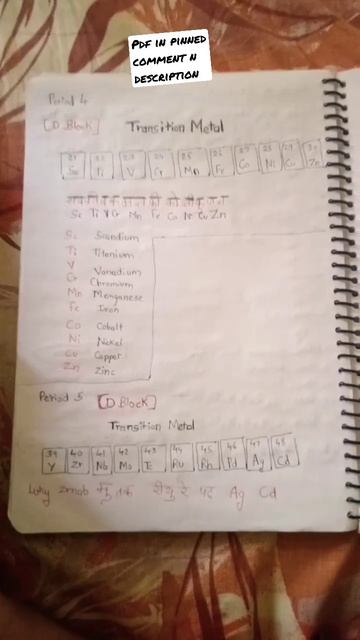 PDF IN PINNED
COMMENT N
DESCRIPTION
Period 4
[D Block] Transition Metal
21 22 23 24 25 26 27 28 29 30
Sc Ti V Cr Mn Fe Co Ni Cu Zn
Sc Ti V Cr Mn Fe Co Ni Cu Zn
Sc Scandium
Ti Titenium
V Vanadium
Cr Chromium
Mn Menganese
Fe Iron
Co Cobalt
Ni Nickel
Cu Copper
Zn Zinc
Period 5 [D Block]
Transition Metal
39 40 41 42 43 44 45 46 47 48
Y Zr Nb Mo Tc Ru Rh Pd Ag Cd
Why तक रे पद Ag Cd